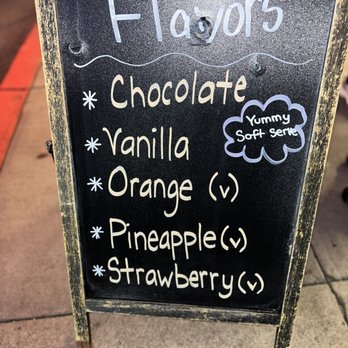 Flavors
* Chocolate
Yummy
Soft Serve
* Vanilla
* Orange (v)
* Pineapple (v)
* Strawberry (v)